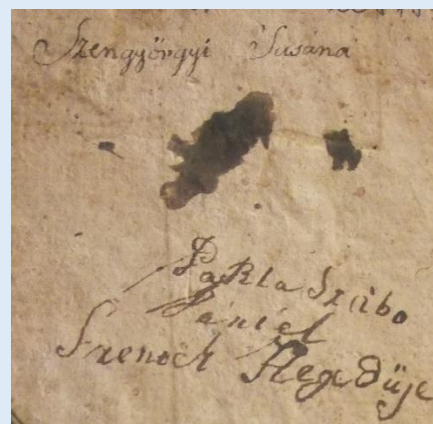 Szengyörgyi Susána
Pakla Szabo
Dániel
Szenoch Hegedüje